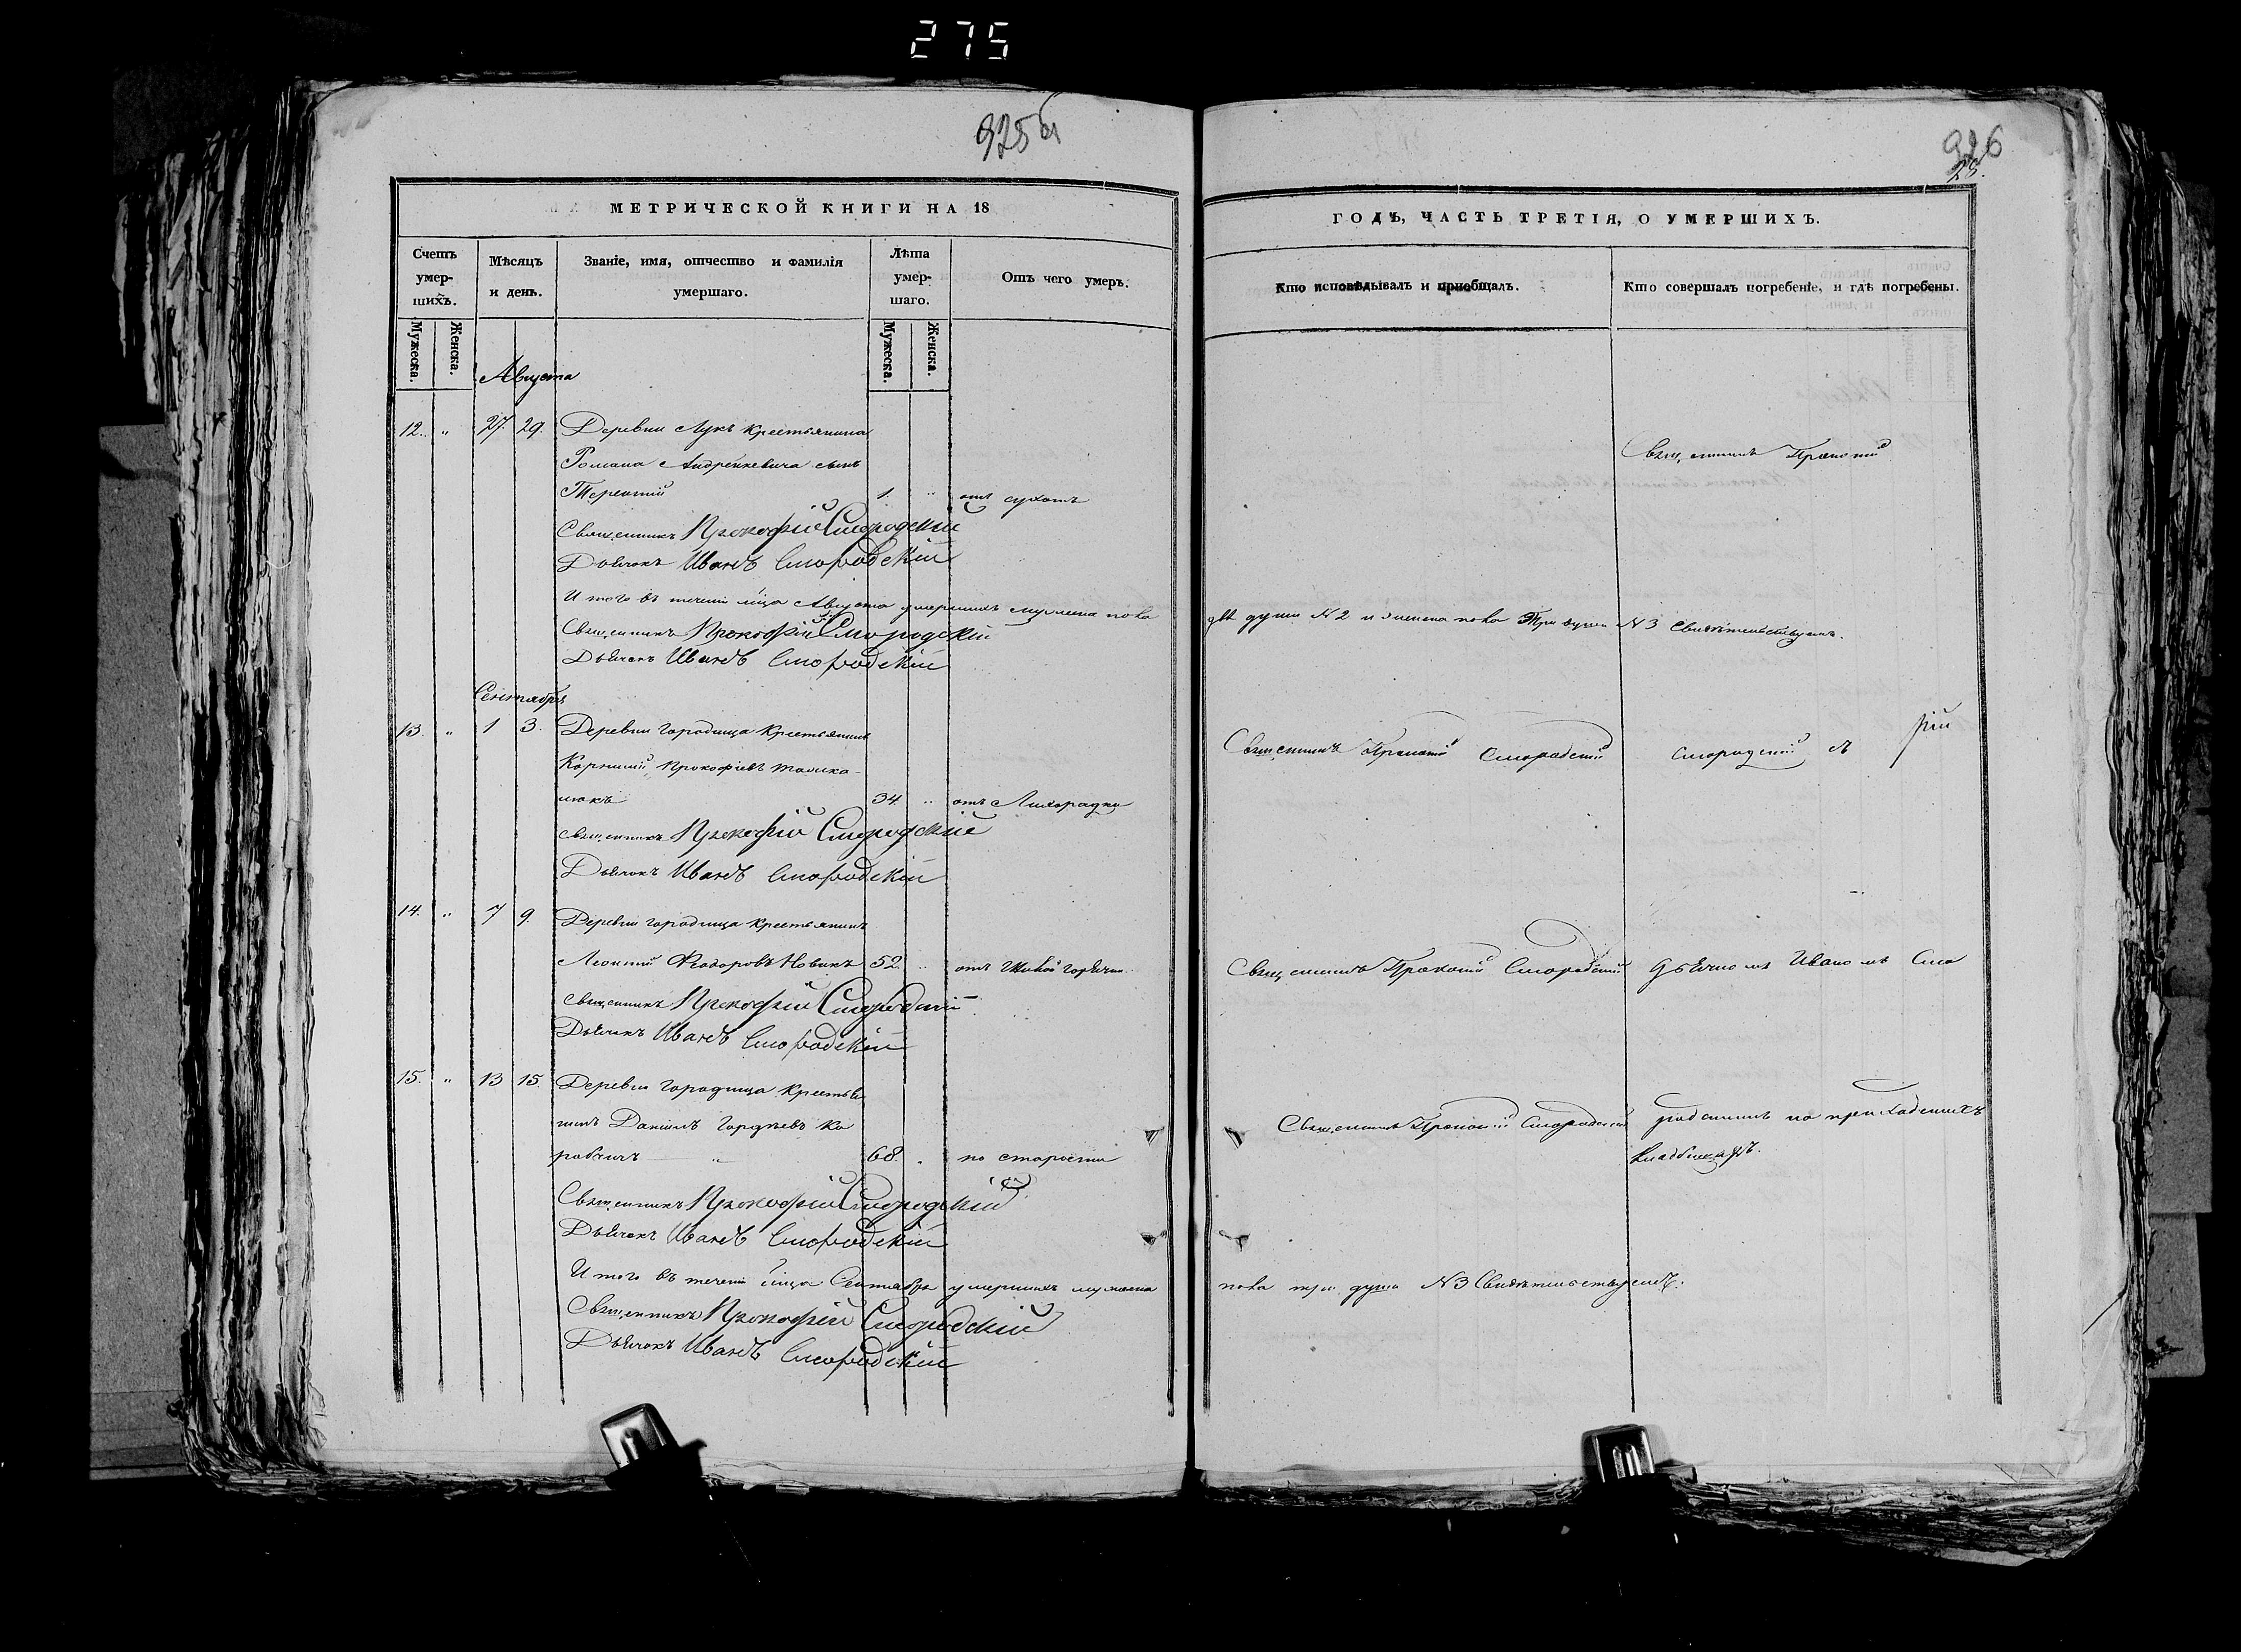 275
925 об
926
28.
МЕТРИЧЕСКОЙ КНИГИ НА 18
ГОДЪ, ЧАСТЬ ТРЕТІЯ, О УМЕРШИХЪ.
Счетъ умер-шихъ.
Мѣсяцъ и день.
Званіе, имя, отчество и фамилія умершаго.
Лѣта умер-шаго.
Отъ чего умеръ.
Кто исповѣдывалъ и приобщалъ.
Кто совершалъ погребеніе, и гдѣ погребены.
Мужеска.
Женска.
Мужеска.
Женска.
Августа
12. " 27. 29. Деревни Лукъ крестьянина
Романа Андрейкевича сынъ
Терентій 1. " отъ сухотъ
Священникъ Прокофій Смородскій
Дьячокъ Иванъ Смородскій
Священникъ Прокопій
И того въ теченіи мца Августа умершихъ мужеска пола
двѣ души №2 и женска пола три души №3 свидѣтельствуемъ.
Священникъ Прокофій Смородскій
Дьячокъ Иванъ Смородскій
Сентябрь
13. " 1 3. Деревни Городища крестьянинъ
Корнилій Прокофіевъ
34. " отъ Лихорадки
Священникъ Прокофій Смородскій
Дьячокъ Иванъ Смородскій
Священникъ Прокопій Смородскій
Смородскій съ
14. " 7 9. Деревни Городища крестьянинъ
Леонтій Феодоровъ Новикъ 52. " отъ
Священникъ Прокофій Смородскій
Дьячокъ Иванъ Смородскій
Священникъ Прокопій Смородскій
дьячкомъ Иваномъ Смо
15. " 13 15. Деревни Городища крестья
нинъ Даніилъ Гордѣевъ Ко
робчичъ " 68. " по старости
Священникъ Прокофій Смородскій
Дьячокъ Иванъ Смородскій
Священникъ Прокопій Смородскій
родскимъ на приходскихъ
кладбищахъ.
И того въ теченіи мца Сентября умершихъ мужеска
пола три души №3 Свидѣтельствуемъ.
Священникъ Прокофій Смородскій
Дьячокъ Иванъ Смородскій